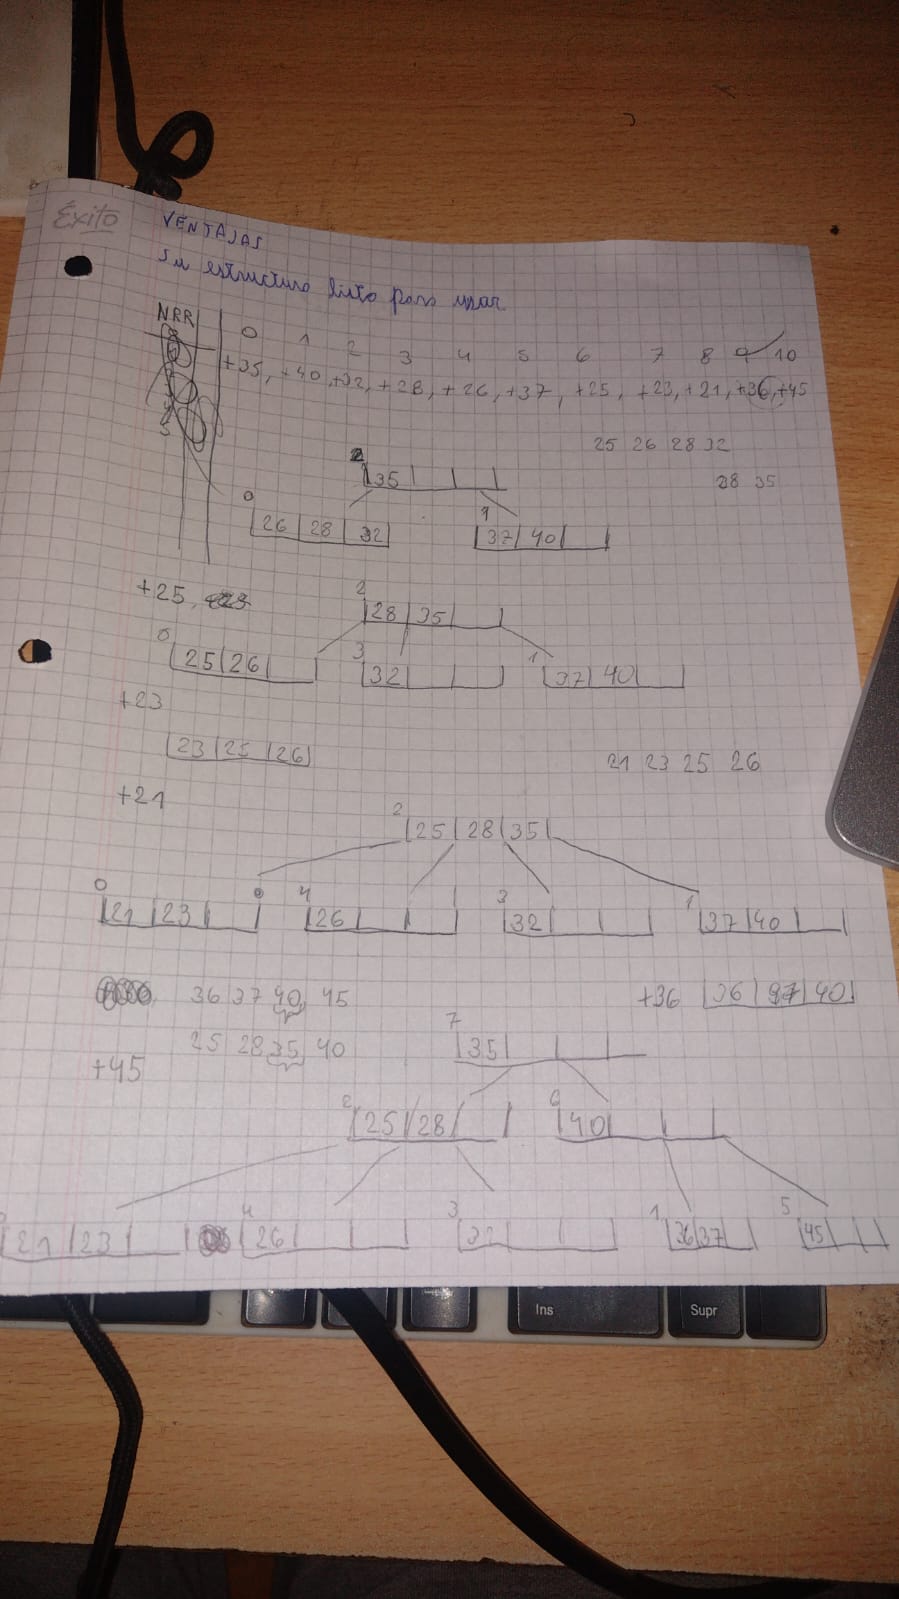 Éxito
VENTAJAS
Su estructura lista para usar
NRR
0 1 2 3 4 5 6 7 8 9 10
+35, +40, +32, +28, +26, +37, +25, +23, +21, +36, +45
25 26 28 32
2
35
28 35
0 1
26 28 32 37 40
+25,
2
28 35
0 3 1
25 26 32 37 40
+23
23 25 26
21 23 25 26
+21
2
25 28 35
0 4 3 1
21 23 26 32 37 40
36 37 40 45
+36 36 37 40
25 28 35 40
+45
7
35
2 6
25 28 40
4 3 1 5
21 23 26 32 36 37 45
Ins
Supr